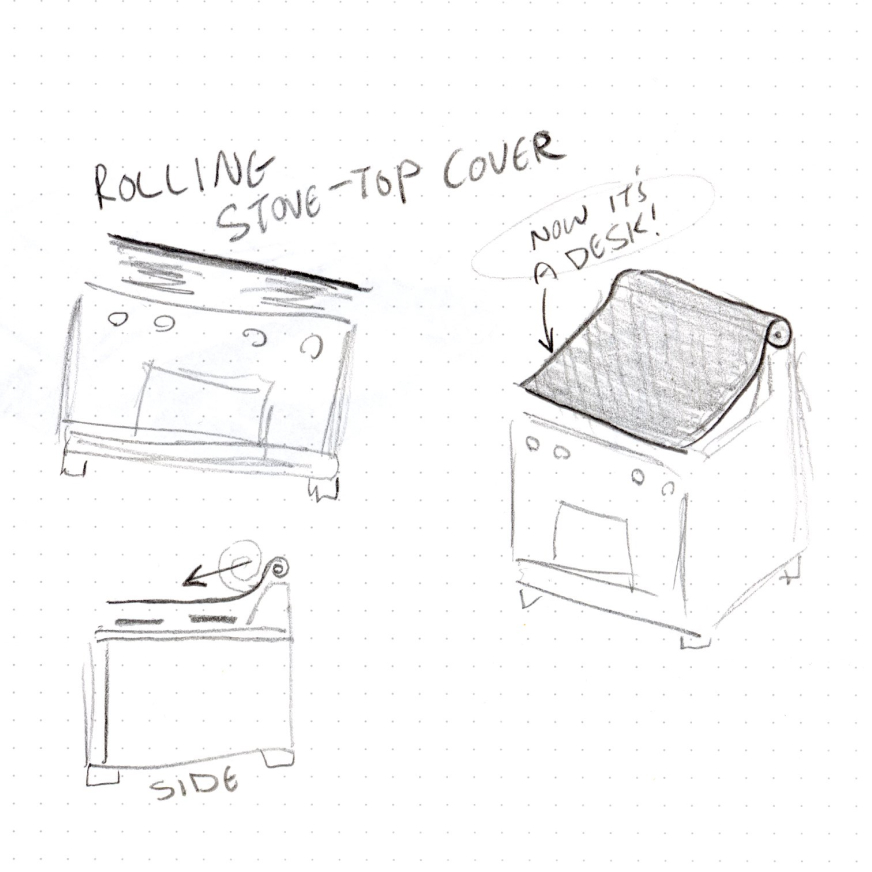 ROLLING
STOVE-TOP COVER
NOW IT'S
A DESK!
SIDE